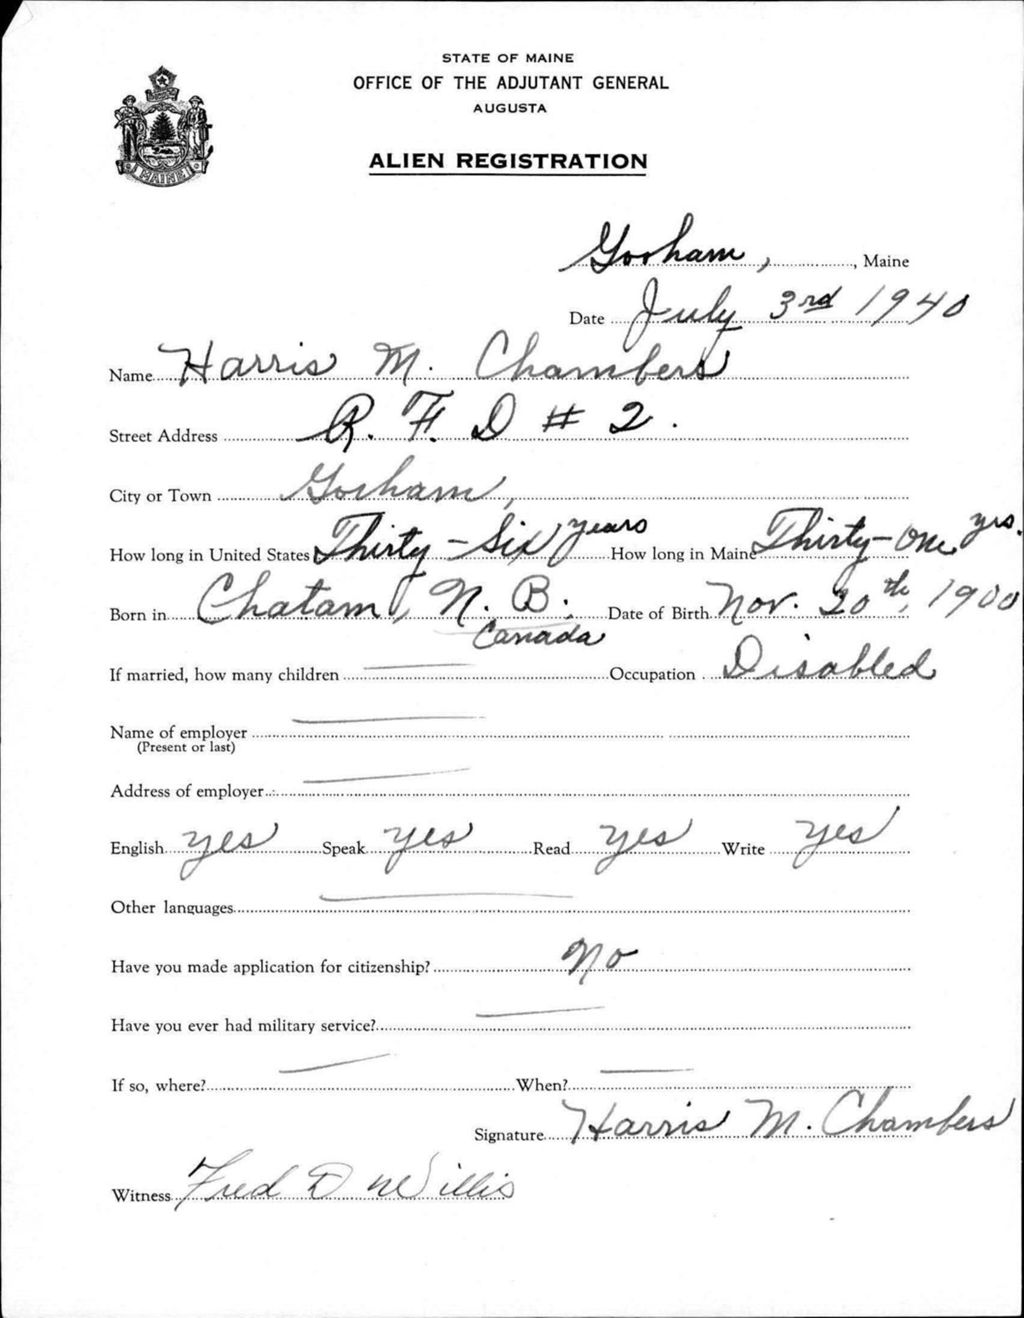 STATE OF MAINE
OFFICE OF THE ADJUTANT GENERAL
AUGUSTA
ALIEN REGISTRATION
MAINE
Gorham, , Maine
Date July 3rd 1940
Name Harris M. Chambers
Street Address R. F. D # 2.
City or Town Gorham,
How long in United States Thirty-Six years How long in Maine Thirty-One yrs.
Born in Chatam, N. B. Date of Birth Nov. 20th, 1900
Canada
If married, how many children Occupation Disabled
Name of employer
(Present or last)
Address of employer
English yes Speak yes Read yes Write yes
Other languages
Have you made application for citizenship? No
Have you ever had military service?
If so, where? When?
Signature Harris M. Chambers
Witness Fred D Willis